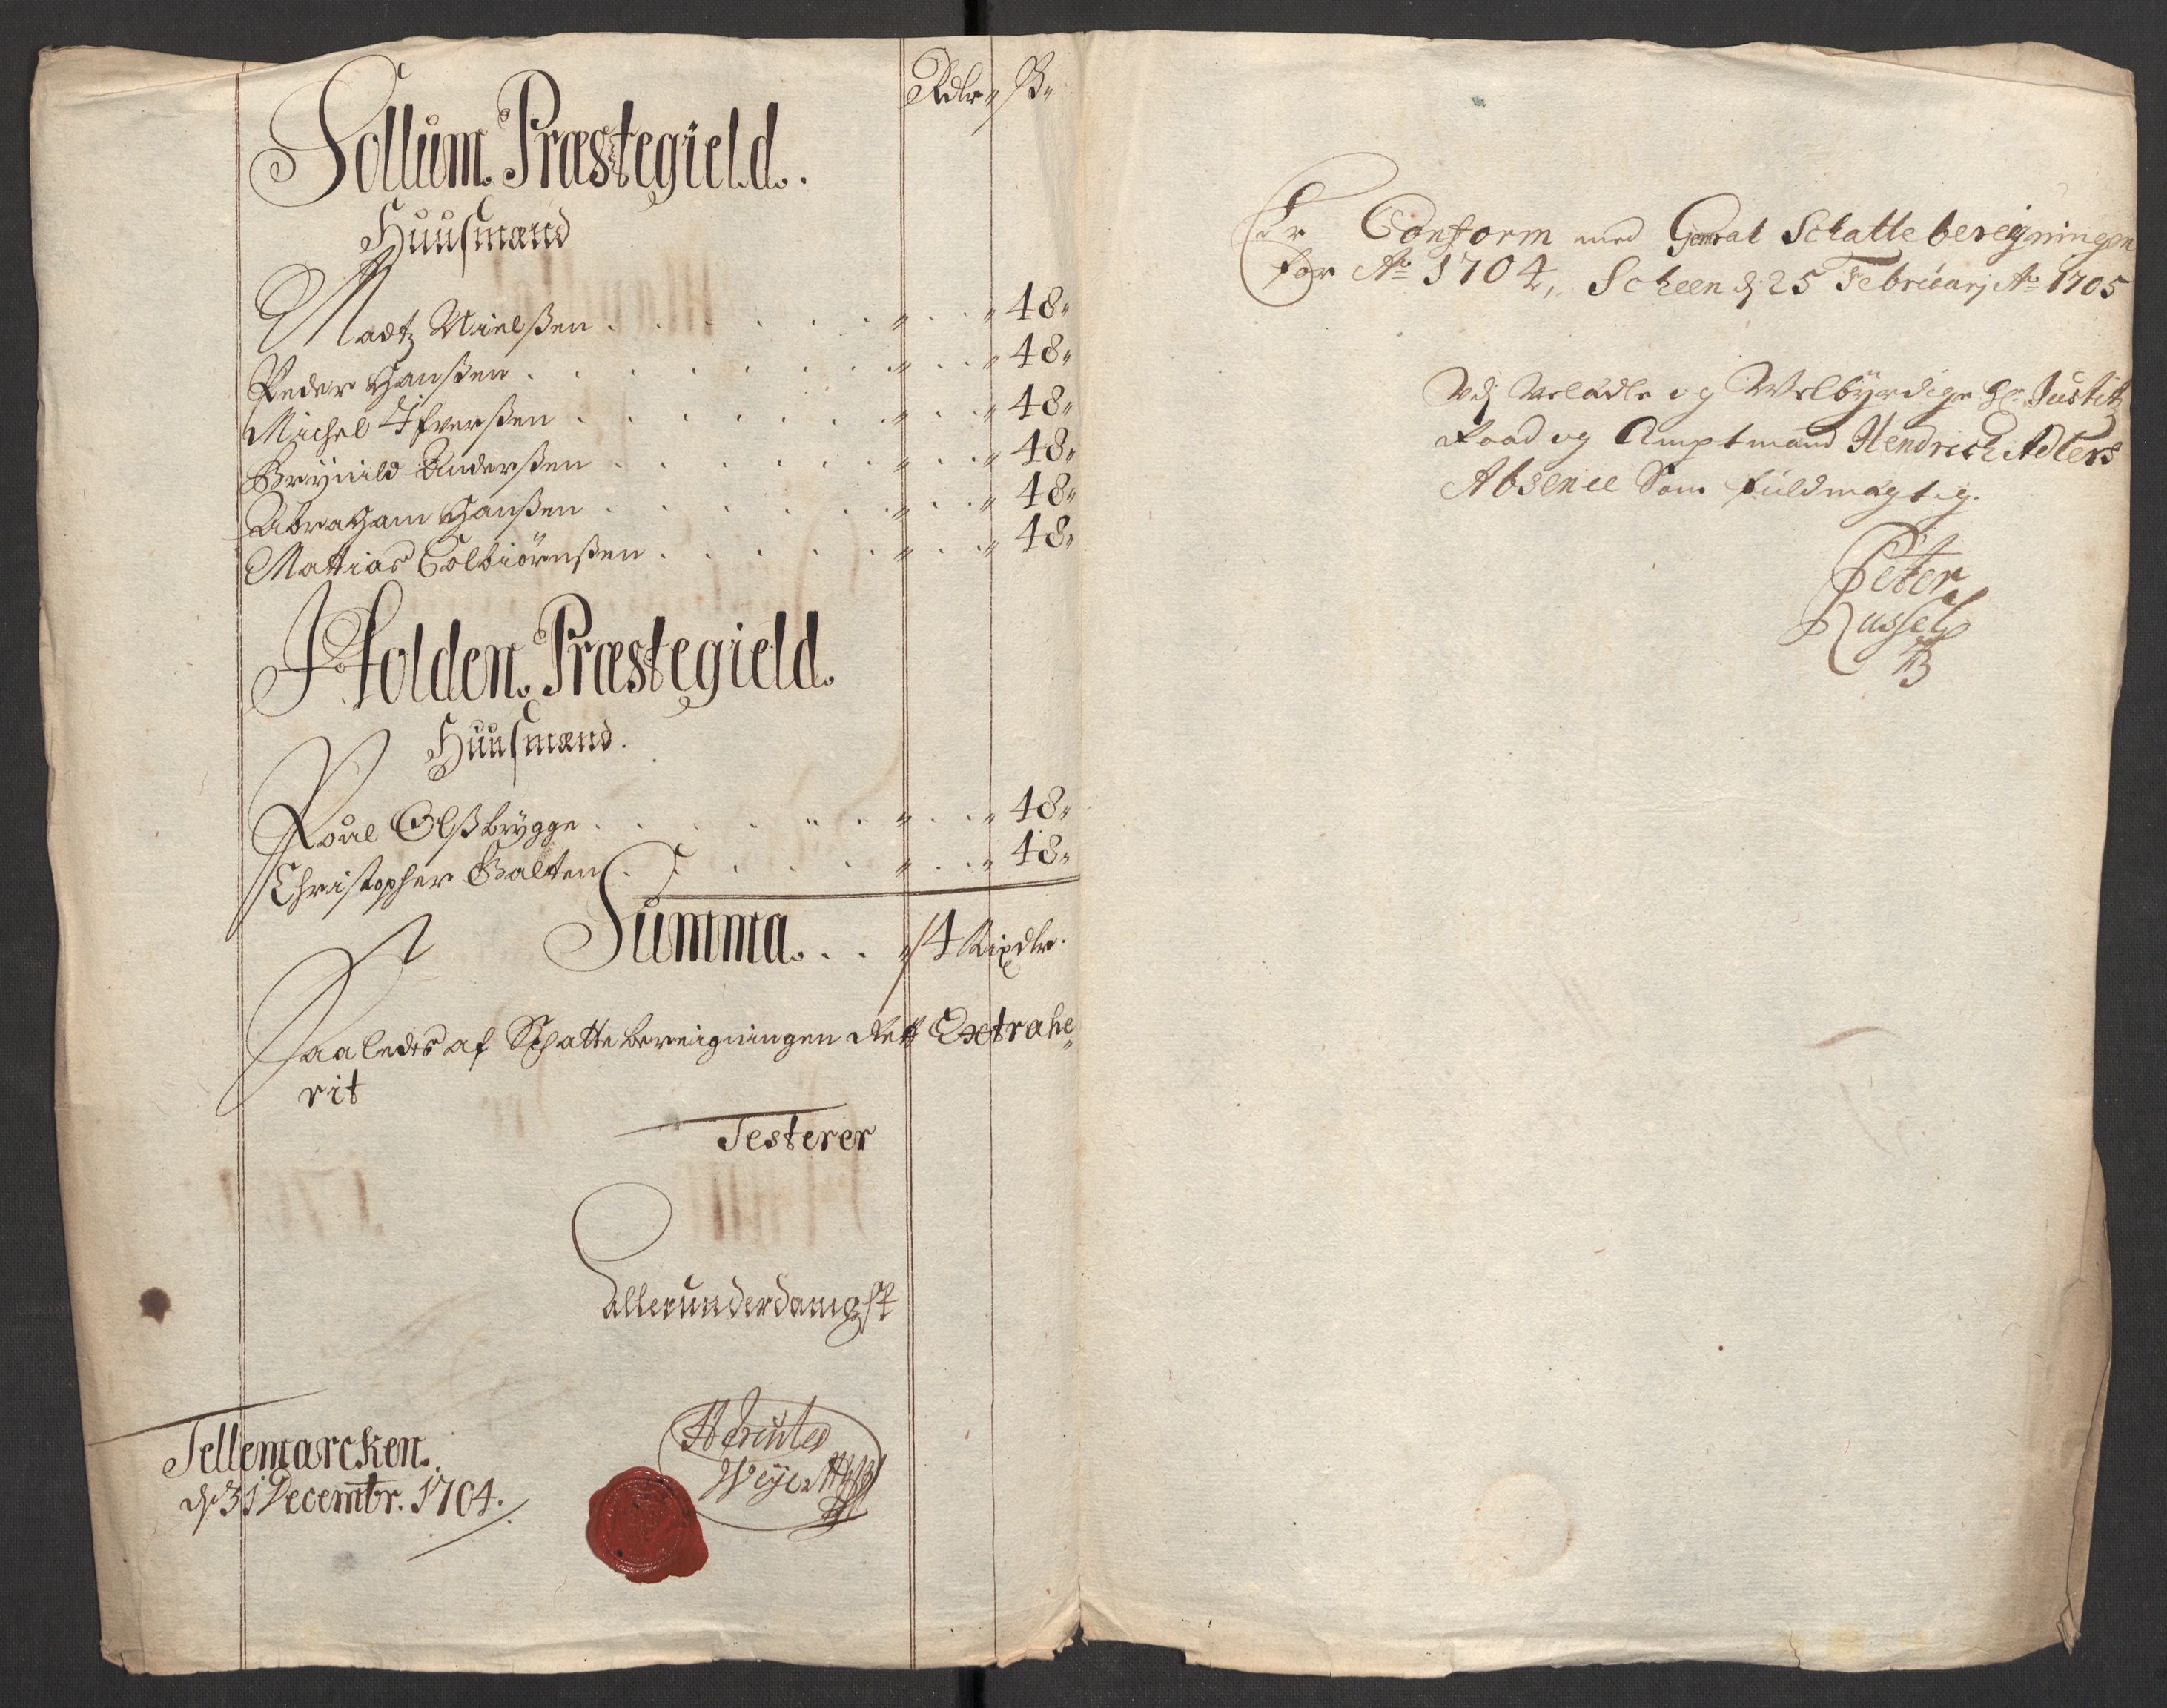 Rdlr ß
Sollum. Præstegield.
Huusmænd
Madtz Nielßen . . . . . . " . . " 48"
Peder Hanßen . . . . . . . " . . " 48"
Michel Ifverßen . . . . . . " . . " 48"
Brynild Anderßen . . . . . . " . . " 48"
Abraham Hanßen . . . . . . " . . " 48"
Mattias Colbiörnßen . . . . . " . . " 48"
Holden. Præstegield.
Huusmænd.
Poùl Olßbrygge . . . . . . " . . " 48"
Christopher Balten . . . . . " . . " 48"
Summa. . . 4 Rixdlr.
Saaledes af Schatte bereigningen Rett Extrahe
rit
Testerer
Allerunderdanigst
Tellemarcken.
d. 31 Decembr. 1704.
Er Conform med General Schatte bereigningen
for Ao 1704, Scheen d. 25 Februarj Ao 1705
Udj Velædle og Welbyrdige Hr. Justitz
Raad og Amptmand Hendrich Adlers
Absence Som fuldmægtig.
Peter
Russel